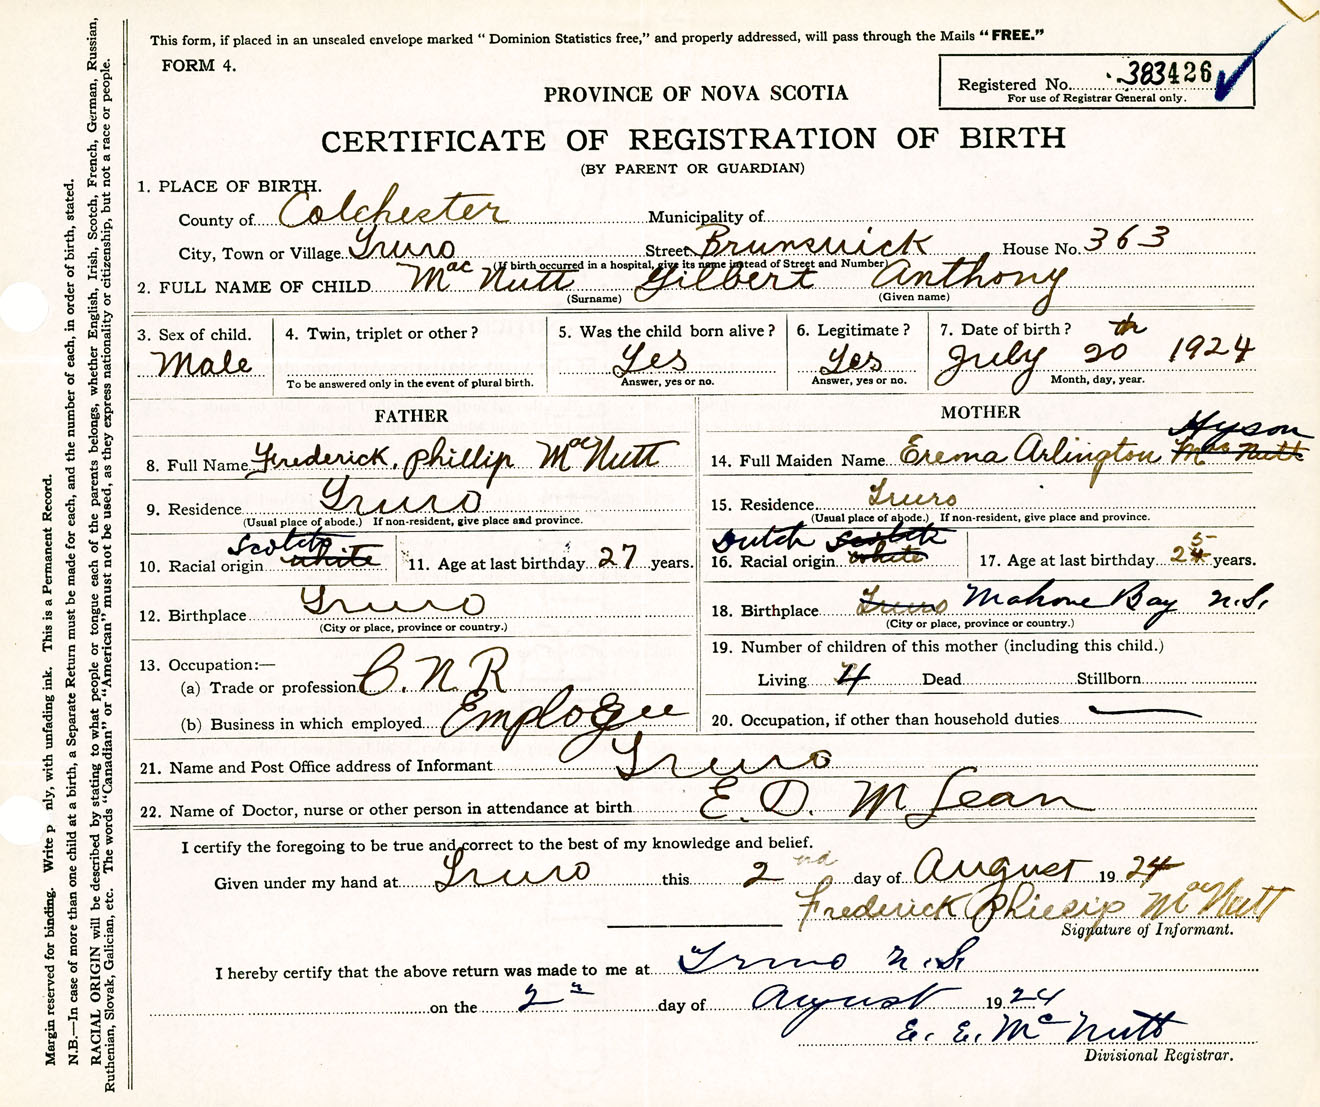 This form, if placed in an unsealed envelope marked " Dominion Statistics free," and properly addressed, will pass through the Mails " FREE."
FORM 4.
Registered No. 383426
For use of Registrar General only.
PROVINCE OF NOVA SCOTIA
CERTIFICATE OF REGISTRATION OF BIRTH
(BY PARENT OR GUARDIAN)
1. PLACE OF BIRTH.
County of Colchester Municipality of
City, Town or Village Truro Street Brunswick House No. 363
(If birth occurred in a hospital, give its name instead of Street and Number)
2. FULL NAME OF CHILD MacNutt Gilbert Anthony
(Surname) (Given name)
3. Sex of child. 4. Twin, triplet or other? 5. Was the child born alive? 6. Legitimate? 7. Date of birth?
Male Yes Yes July 20th 1924
To be answered only in the event of plural birth. Answer, yes or no. Answer, yes or no. Month, day, year.
FATHER
8. Full Name Frederick, Phillip MacNutt
9. Residence Truro
(Usual place of abode.) If non-resident, give place and province.
Scotch
10. Racial origin white 11. Age at last birthday 27 years.
12. Birthplace Truro
(City or place, province or country.)
13. Occupation:—
(a) Trade or profession C. N. R
(b) Business in which employed Employee
MOTHER
Hyson
14. Full Maiden Name Erema Arlington MacNutt
15. Residence Truro
(Usual place of abode.) If non-resident, give place and province.
Dutch Scotch 5
16. Racial origin white 17. Age at last birthday 24 years.
18. Birthplace Truro Mahone Bay N.S.
(City or place, province or country.)
19. Number of children of this mother (including this child.)
Living 4 Dead Stillborn
20. Occupation, if other than household duties —
21. Name and Post Office address of Informant Truro
22. Name of Doctor, nurse or other person in attendance at birth E. D. McLean
I certify the foregoing to be true and correct to the best of my knowledge and belief.
Given under my hand at Truro this 2nd day of August 1924
Frederick Phillip MacNutt
Signature of Informant.
I hereby certify that the above return was made to me at Truro N.S.
on the 2nd day of August 1924
E. E. McNutt
Divisional Registrar.
Margin reserved for binding. Write p nly, with unfading ink. This is a Permanent Record.
N.B.—In case of more than one child at a birth, a Separate Return must be made for each, and the number of each, in order of birth, stated.
RACIAL ORIGIN will be described by stating to what people or tongue each of the parents belongs, whether English, Irish, Scotch, French, German, Russian,
Ruthenian, Slovak, Galician, etc. The words "Canadian" or "American" must not be used, as they express nationality or citizenship, but not a race or people.